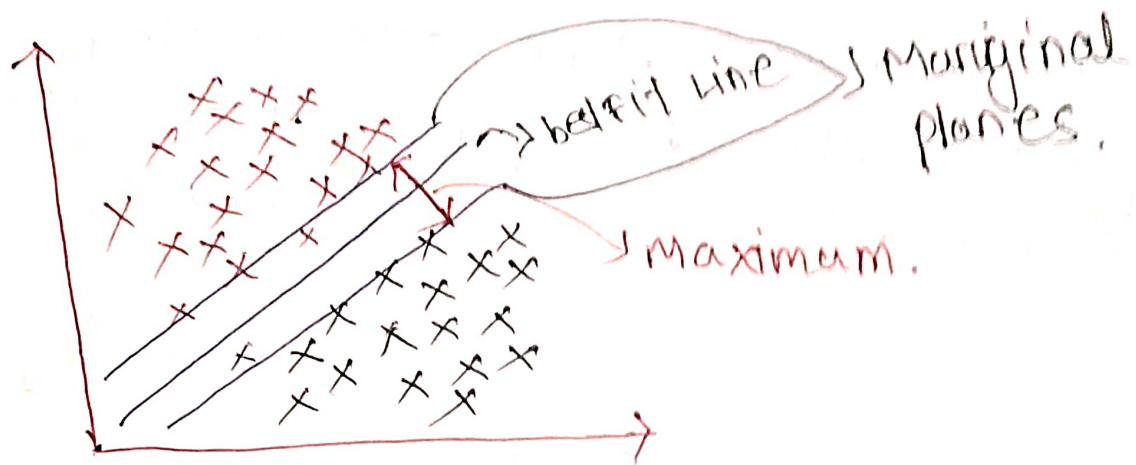 bestfit Line
Mariginal
planes.
Maximum.